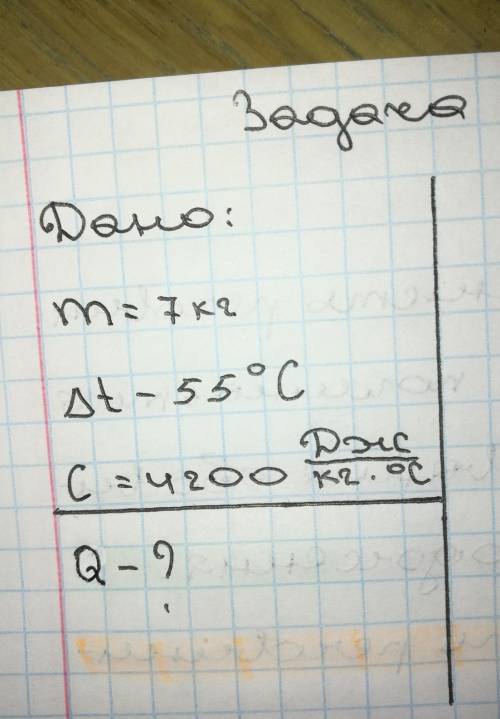 Задача
Дано:
m = 7 кг
Δt - 55°C
C = 4200 Дж/кг·°C
Q - ?